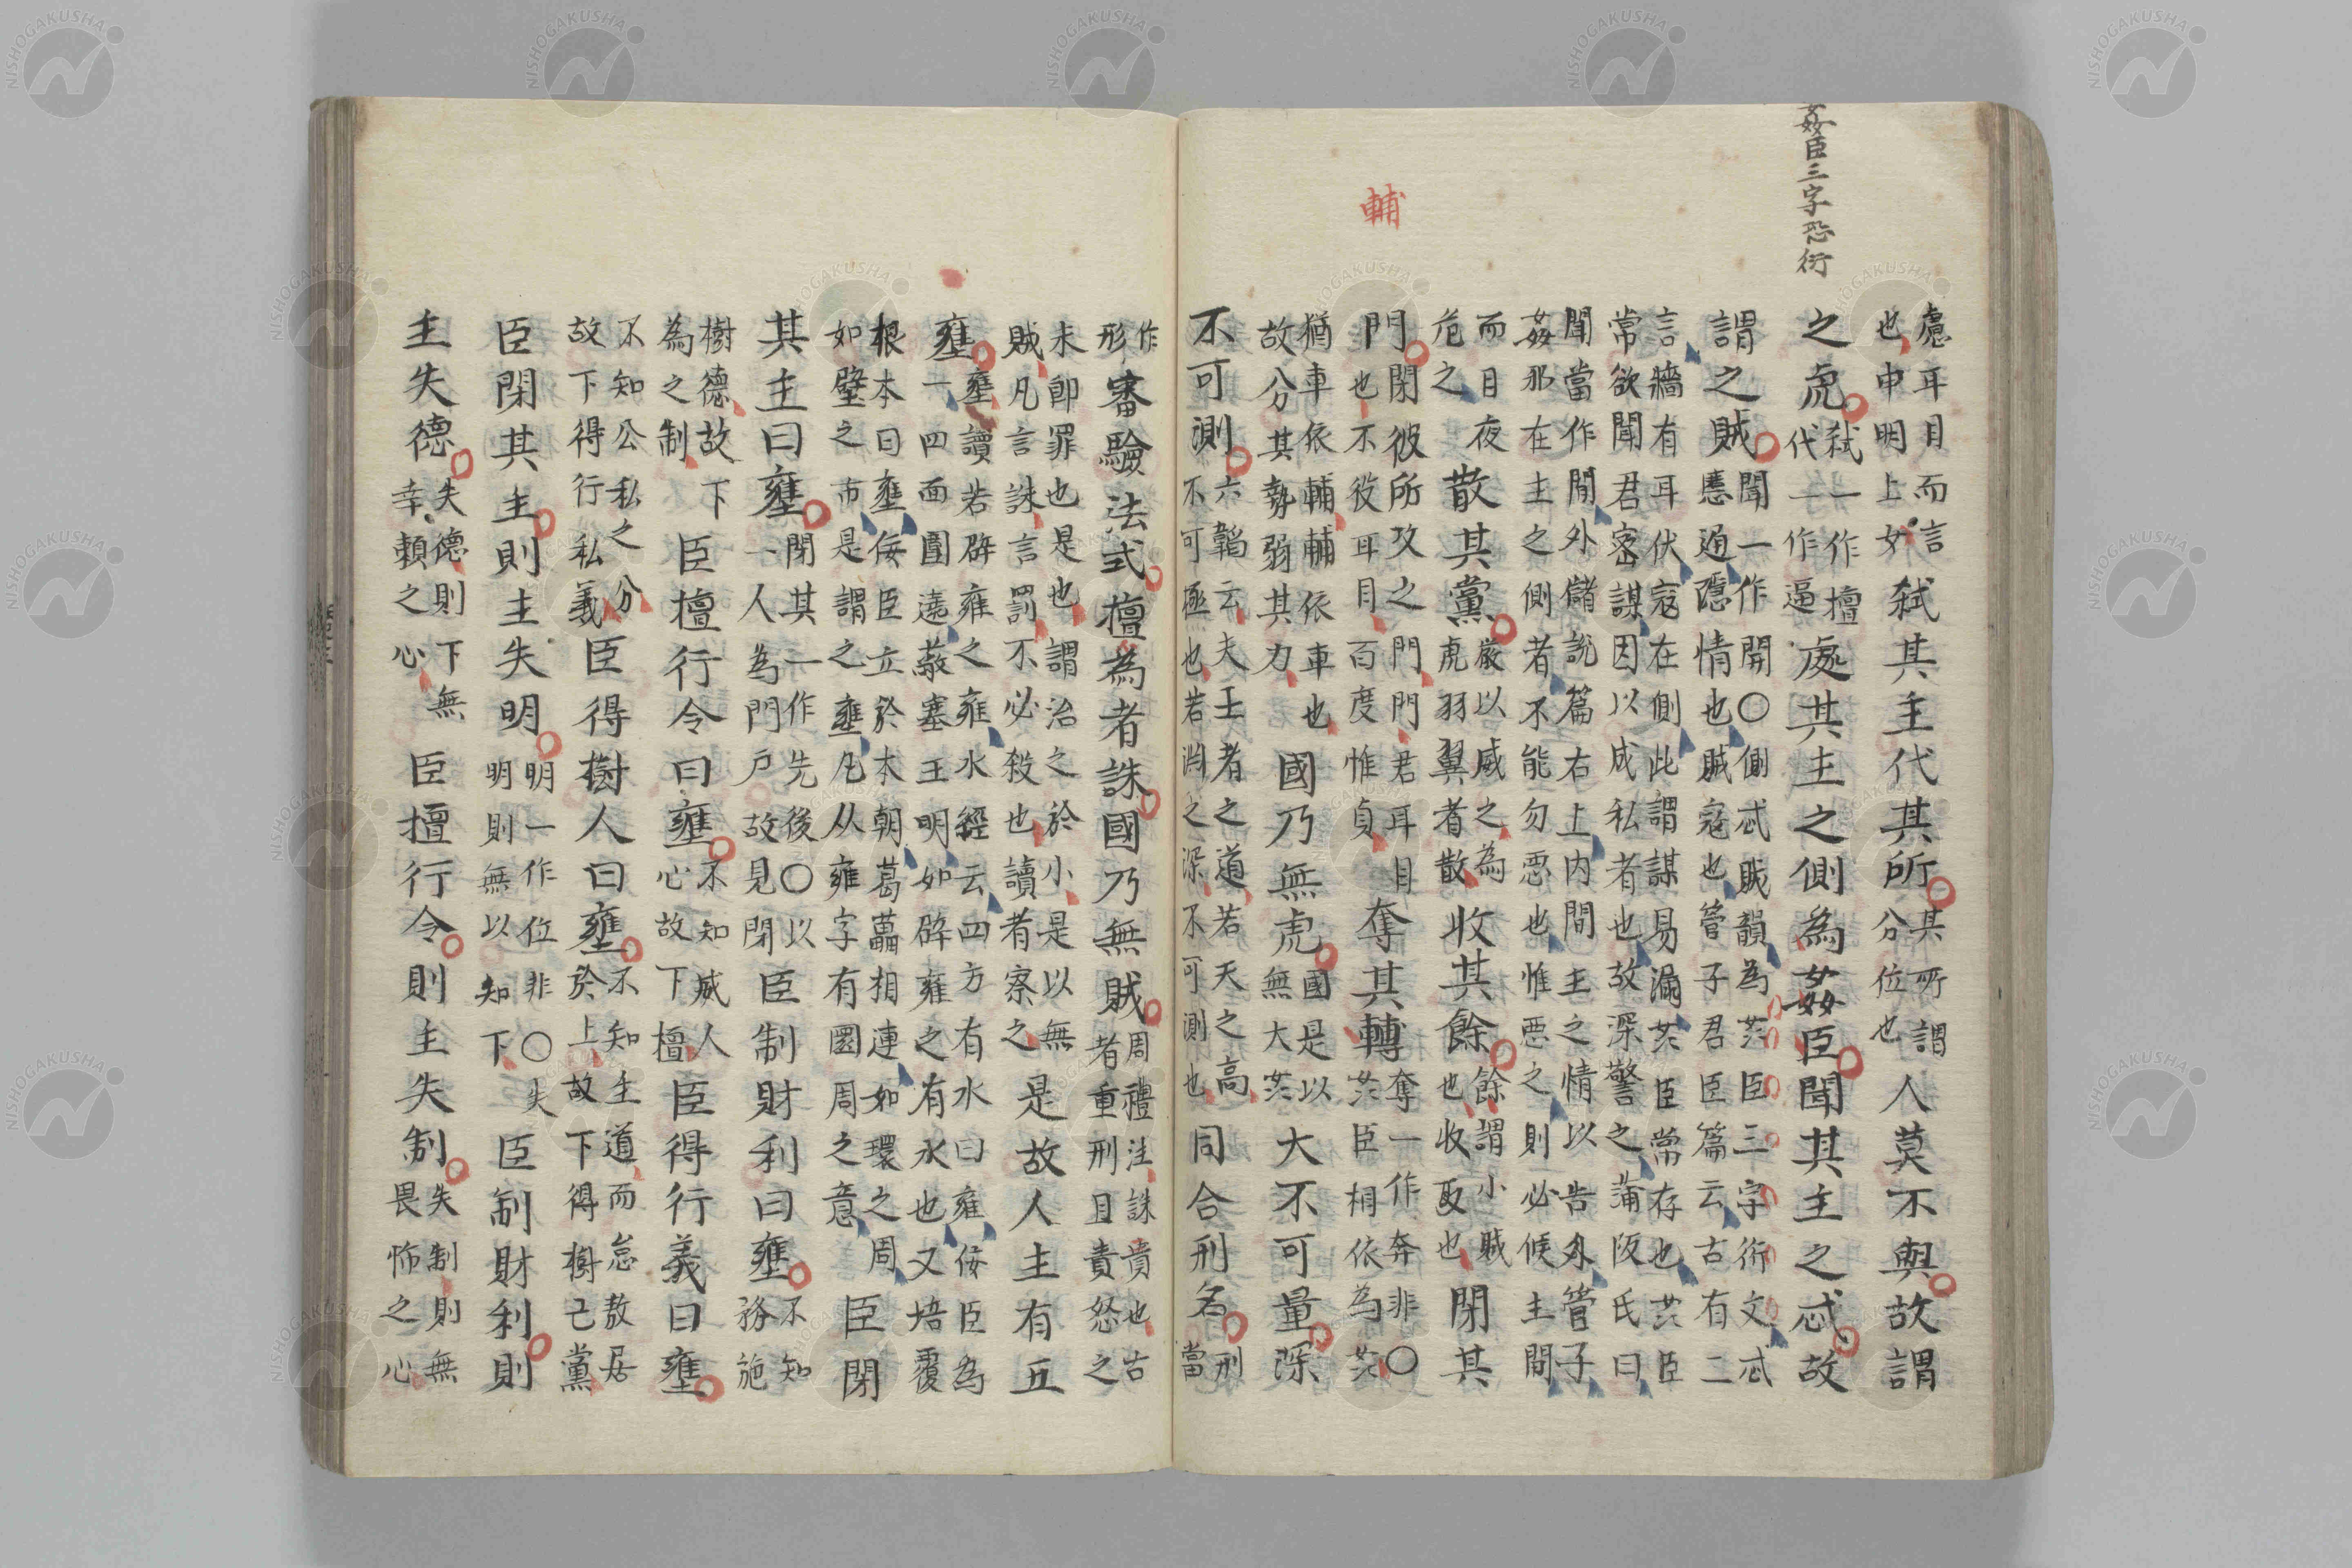 姦臣三字恐衍
慮耳目而言
也申明上女
弑其主代其所
其所謂
分位也
人莫不與故謂
之虎
弑一作擅
代一作逼
處其主之側為姦臣聞其主之忒故
謂之賊
聞一作開〇側忒賊韻為姦臣三字衍文忒
慝通隱情也賊寇也管子君臣篇云古有二
言牆有耳伏寇在側此謂謀易漏姦臣常存也姦臣
常欲聞君密謀因以成私者也故深警之蒲阪氏曰
聞當作間外儲說篇右上内間主之情以告外管子
姦邪在主之側者不能勿惡也惟惡之則必候主間
而日夜
危之
散其黨
嚴以威之為
虎羽翼者散
收其餘
餘謂小賊
也收收也
閉其
門
閉彼所攻之門門君耳目
也不役耳目百度惟貞
奪其轉
奪一作奔非〇
姦臣相依為姦
猶車依輔輔依車也
故分其勢弱其力
國乃無虎
國是以
無大姦
大不可量深
不可測
六韜云夫王者之道若天之高
不可極也若淵之深不可測也
同合刑名
刑
當
輔
作
形
審驗法式擅為者誅國乃無賊
周禮注誅責也古
者重刑且責怒之
未即罪也是也謂治之於小是以無
賊凡言誅言罰不必殺也讀者察之
是故人主有五
壅
壅讀若辟雍之雍水經云四方有水曰雍佞臣為
一四面圍遶蔽塞王明如辟雍之有水也又培覆
根本曰壅佞臣立於本朝葛藟相連如環之周
如壁之市是謂之壅凡从雍字有圜周之意
臣閉
其主曰壅
閉其一作先後〇以
一人為門戸故見閉
臣制財利曰壅
不知
務施
樹德故下
為之制
臣擅行令曰壅
不知威人
心故下擅
臣得行義曰壅
不知公私之分
故下得行私義
臣得樹人曰壅
不知主道而怠敖居
於上故下得樹己黨
臣閉其主則主失明
明一作位非〇失
明則無以知下
臣制財利則
主失德
失德則下無
幸賴之心
臣擅行令則主失制
失制則無
畏怖之心